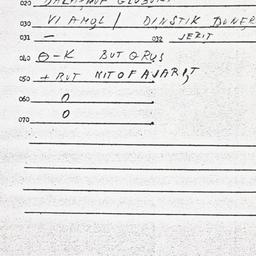 020
030 VI AMOL / DINSTIK DONER
031 – 032 JEZIT
040 O-K BUT ORUS
050 + ROT NITOFAJARIT
060 0
070 0